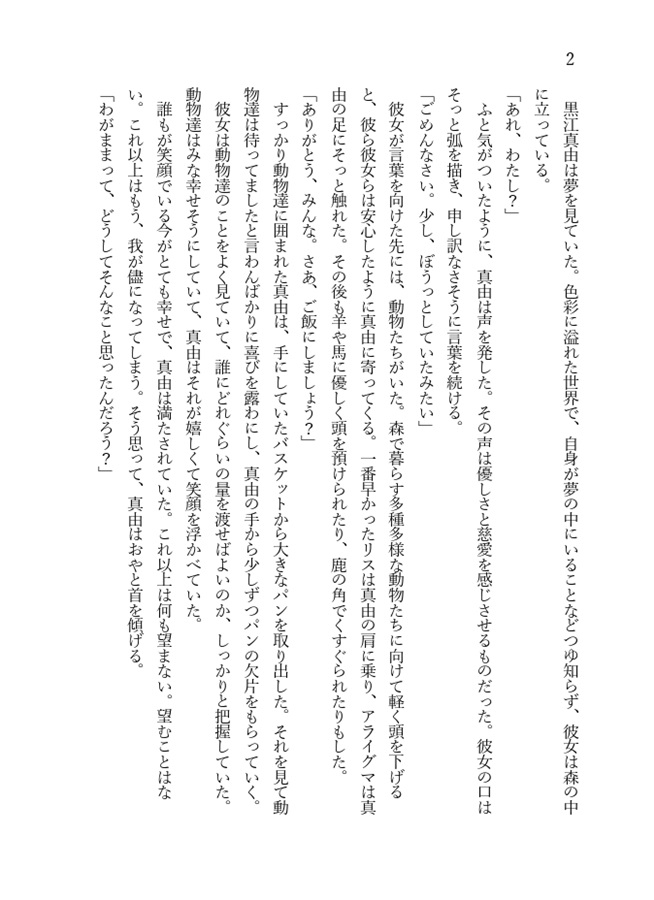 2
黒江真由は夢を見ていた。色彩に溢れた世界で、自身が夢の中にいることなどつゆ知らず、彼女は森の中
に立っている。
「あれ、わたし？」
ふと気がついたように、真由は声を発した。その声は優しさと慈愛を感じさせるものだった。彼女の口は
そっと弧を描き、申し訳なさそうに言葉を続ける。
「ごめんなさい。少し、ぼうっとしていたみたい」
彼女が言葉を向けた先には、動物たちがいた。森で暮らす多種多様な動物たちに向けて軽く頭を下げる
と、彼ら彼女らは安心したように真由に寄ってくる。一番早かったリスは真由の肩に乗り、アライグマは真
由の足にそっと触れた。その後も羊や馬に優しく頭を預けられたり、鹿の角でくすぐられたりもした。
「ありがとう、みんな。さあ、ご飯にしましょう？」
すっかり動物達に囲まれた真由は、手にしていたバスケットから大きなパンを取り出した。それを見て動
物達は待ってましたと言わんばかりに喜びを露わにし、真由の手から少しずつパンの欠片をもらっていく。
彼女は動物達のことをよく見ていて、誰にどれぐらいの量を渡せばよいのか、しっかりと把握していた。
動物達はみな幸せそうにしていて、真由はそれが嬉しくて笑顔を浮かべていた。
誰もが笑顔でいる今がとても幸せで、真由は満たされていた。これ以上は何も望まない。望むことはな
い。これ以上はもう、我が儘になってしまう。そう思って、真由はおやと首を傾げる。
「わがままって、どうしてそんなこと思ったんだろう？」